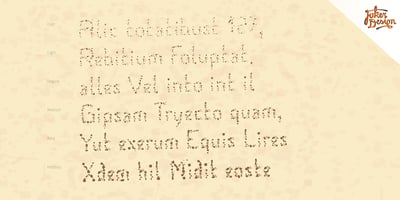 Joker
Design
Alic totatibust 127,
Rebitium Foluptat,
alles Vel into int il
Gipsam Tryecto quam,
Yut exerum Equis Lires
Xdem hil Midit eoste